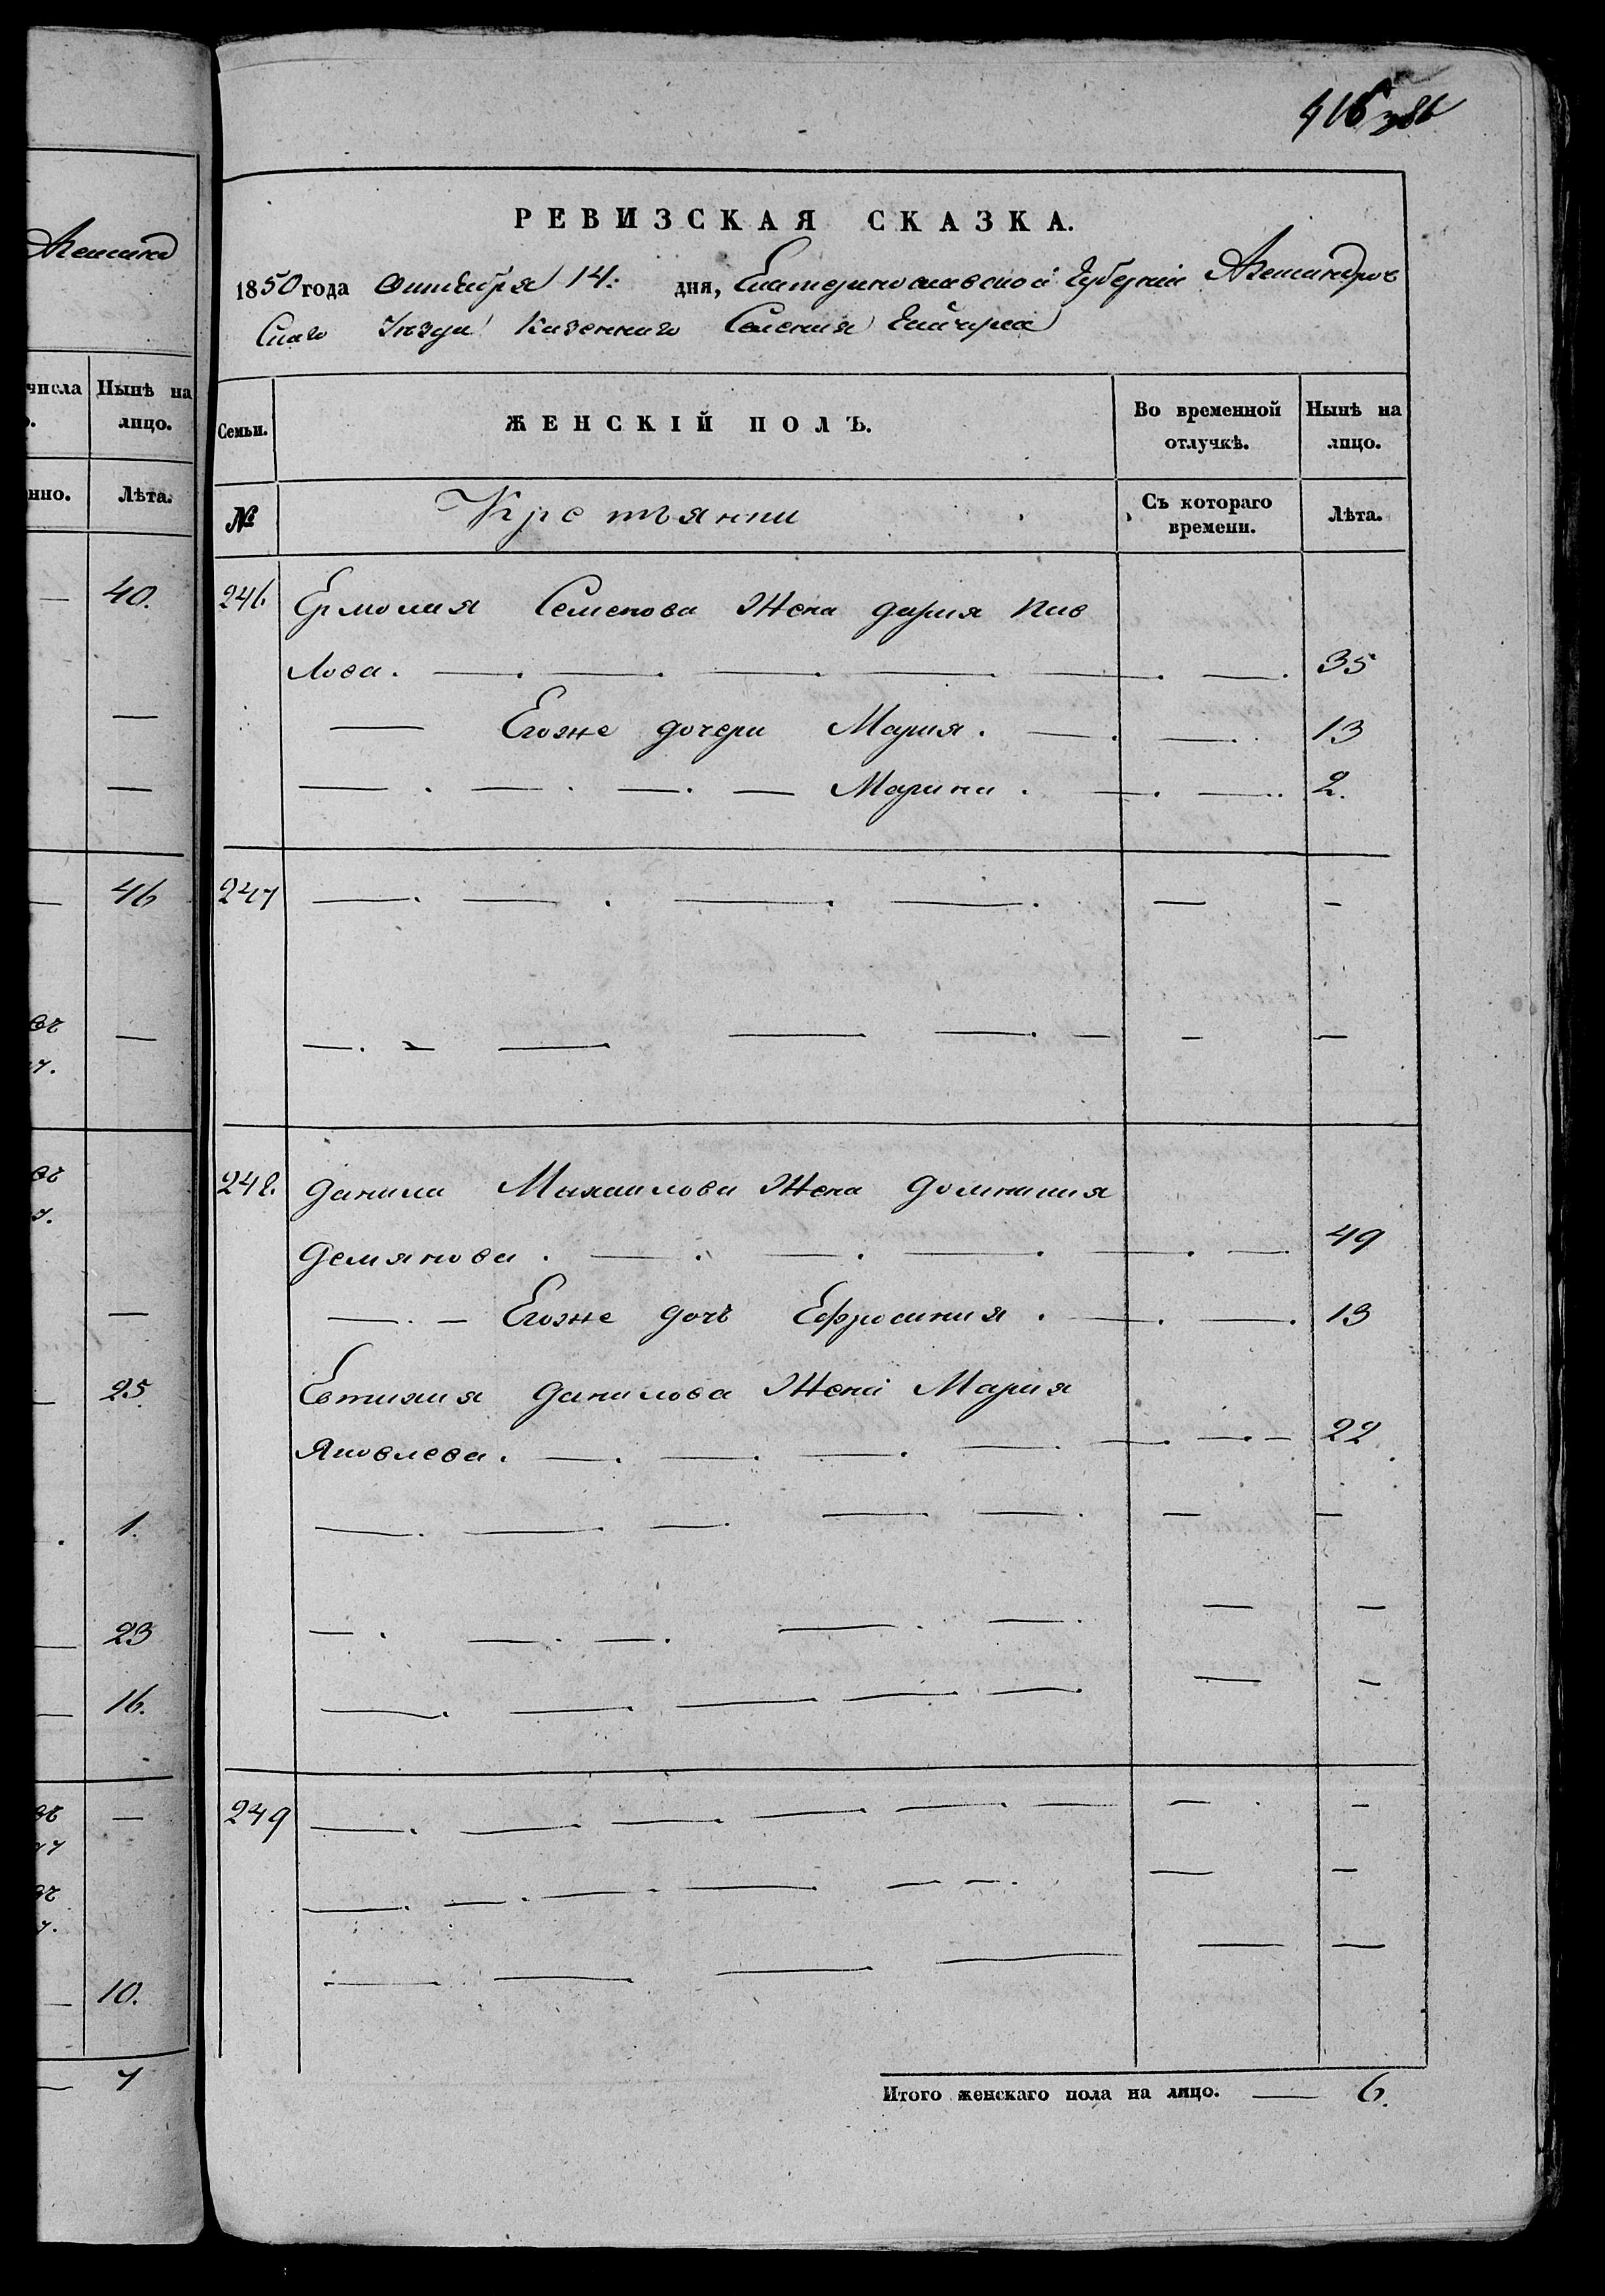 416 386
РЕВИЗСКАЯ СКАЗКА.
1850 года Октября 14: дня, Екатеринославской Губернiи Александров
скаго Уезда Казеннаго Селения Гайчула
Семьи.
ЖЕНСКІЙ ПОЛЪ.
Во временной отлучкѣ.
Нынѣ на лицо.
№
Крестьянки
Съ котораго времени.
Лѣта.
246. Ермолая Семенова Жена дария Пав
лова. 35
Егоже дочери Мария. 13
Марина. 2.
247
248. Данила Михаилова Жена Домникия
Демянова. 49
Егоже дочь Ефросиния. 13
Евтихия Данилова Жена Мария
Яковлева. 22
249
Итого женскаго пола на лицо. 6.
Александ
числа
Нынѣ на лицо.
нно.
Лѣта.
40.
46
25.
1.
23
16.
10.
7